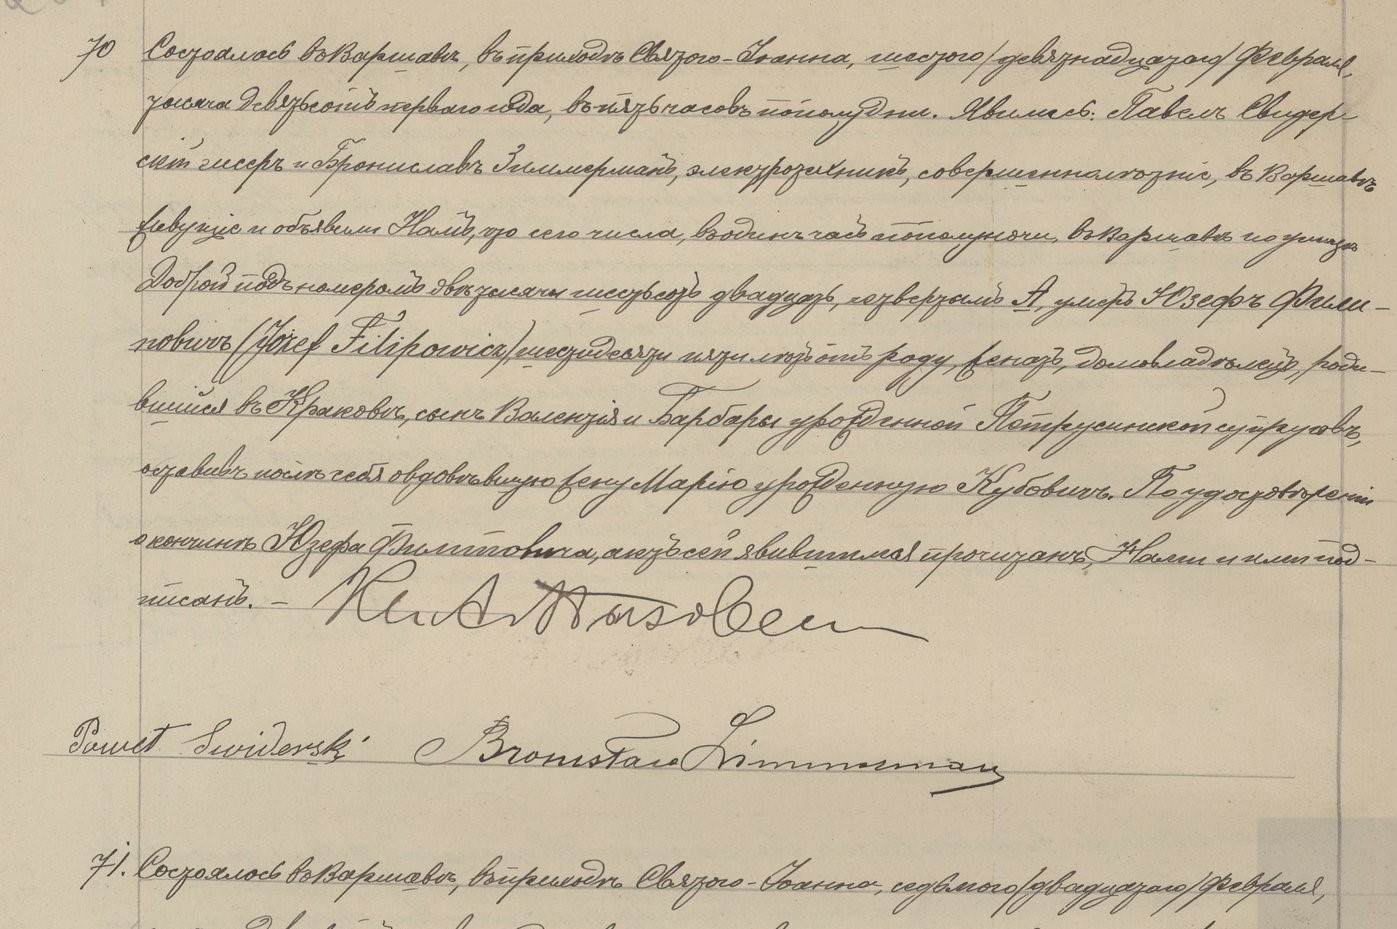 70 Состоялось въ Варшавѣ, въ приходѣ Святого-Іоанна, шестого/девятнадцатого/Февраля,
тысяча девятьсотъ перваго года, въ пять часовъ пополудни. Явились: Павелъ Свидер-
скій и Брониславъ Зиммерманъ, электротехникъ, совершеннолѣтніе, въ Варшавѣ
живущіе и объявили Намъ, что сего числа, въ одинъ часъ пополуночи, въ Варшавѣ по улицѣ
Доброй подъ номеромъ двѣ тысячи шестьсотъ двадцать, четвертымъ А, умеръ Юзефъ Фили-
повичъ (Józef Filipowicz) шестидесяти пяти лѣтъ отъ роду, женатъ, домовладѣлецъ, роди-
вшійся въ Краковѣ, сынъ Валентія и Барбары урожденной Петрусинской супруговъ,
оставивъ послѣ себя овдовѣвшую жену Марію урожденную Кубовичъ. По удостовѣреніи
о кончинѣ Юзефа Филиповича, актъ сей явившимся прочитанъ, Нами и ими под-
писанъ. –
Paweł Swiderski Bronisław Zimmerman
71. Состоялось въ Варшавѣ, въ приходѣ Святого-Іоанна, седьмого/двадцатого/Февраля,